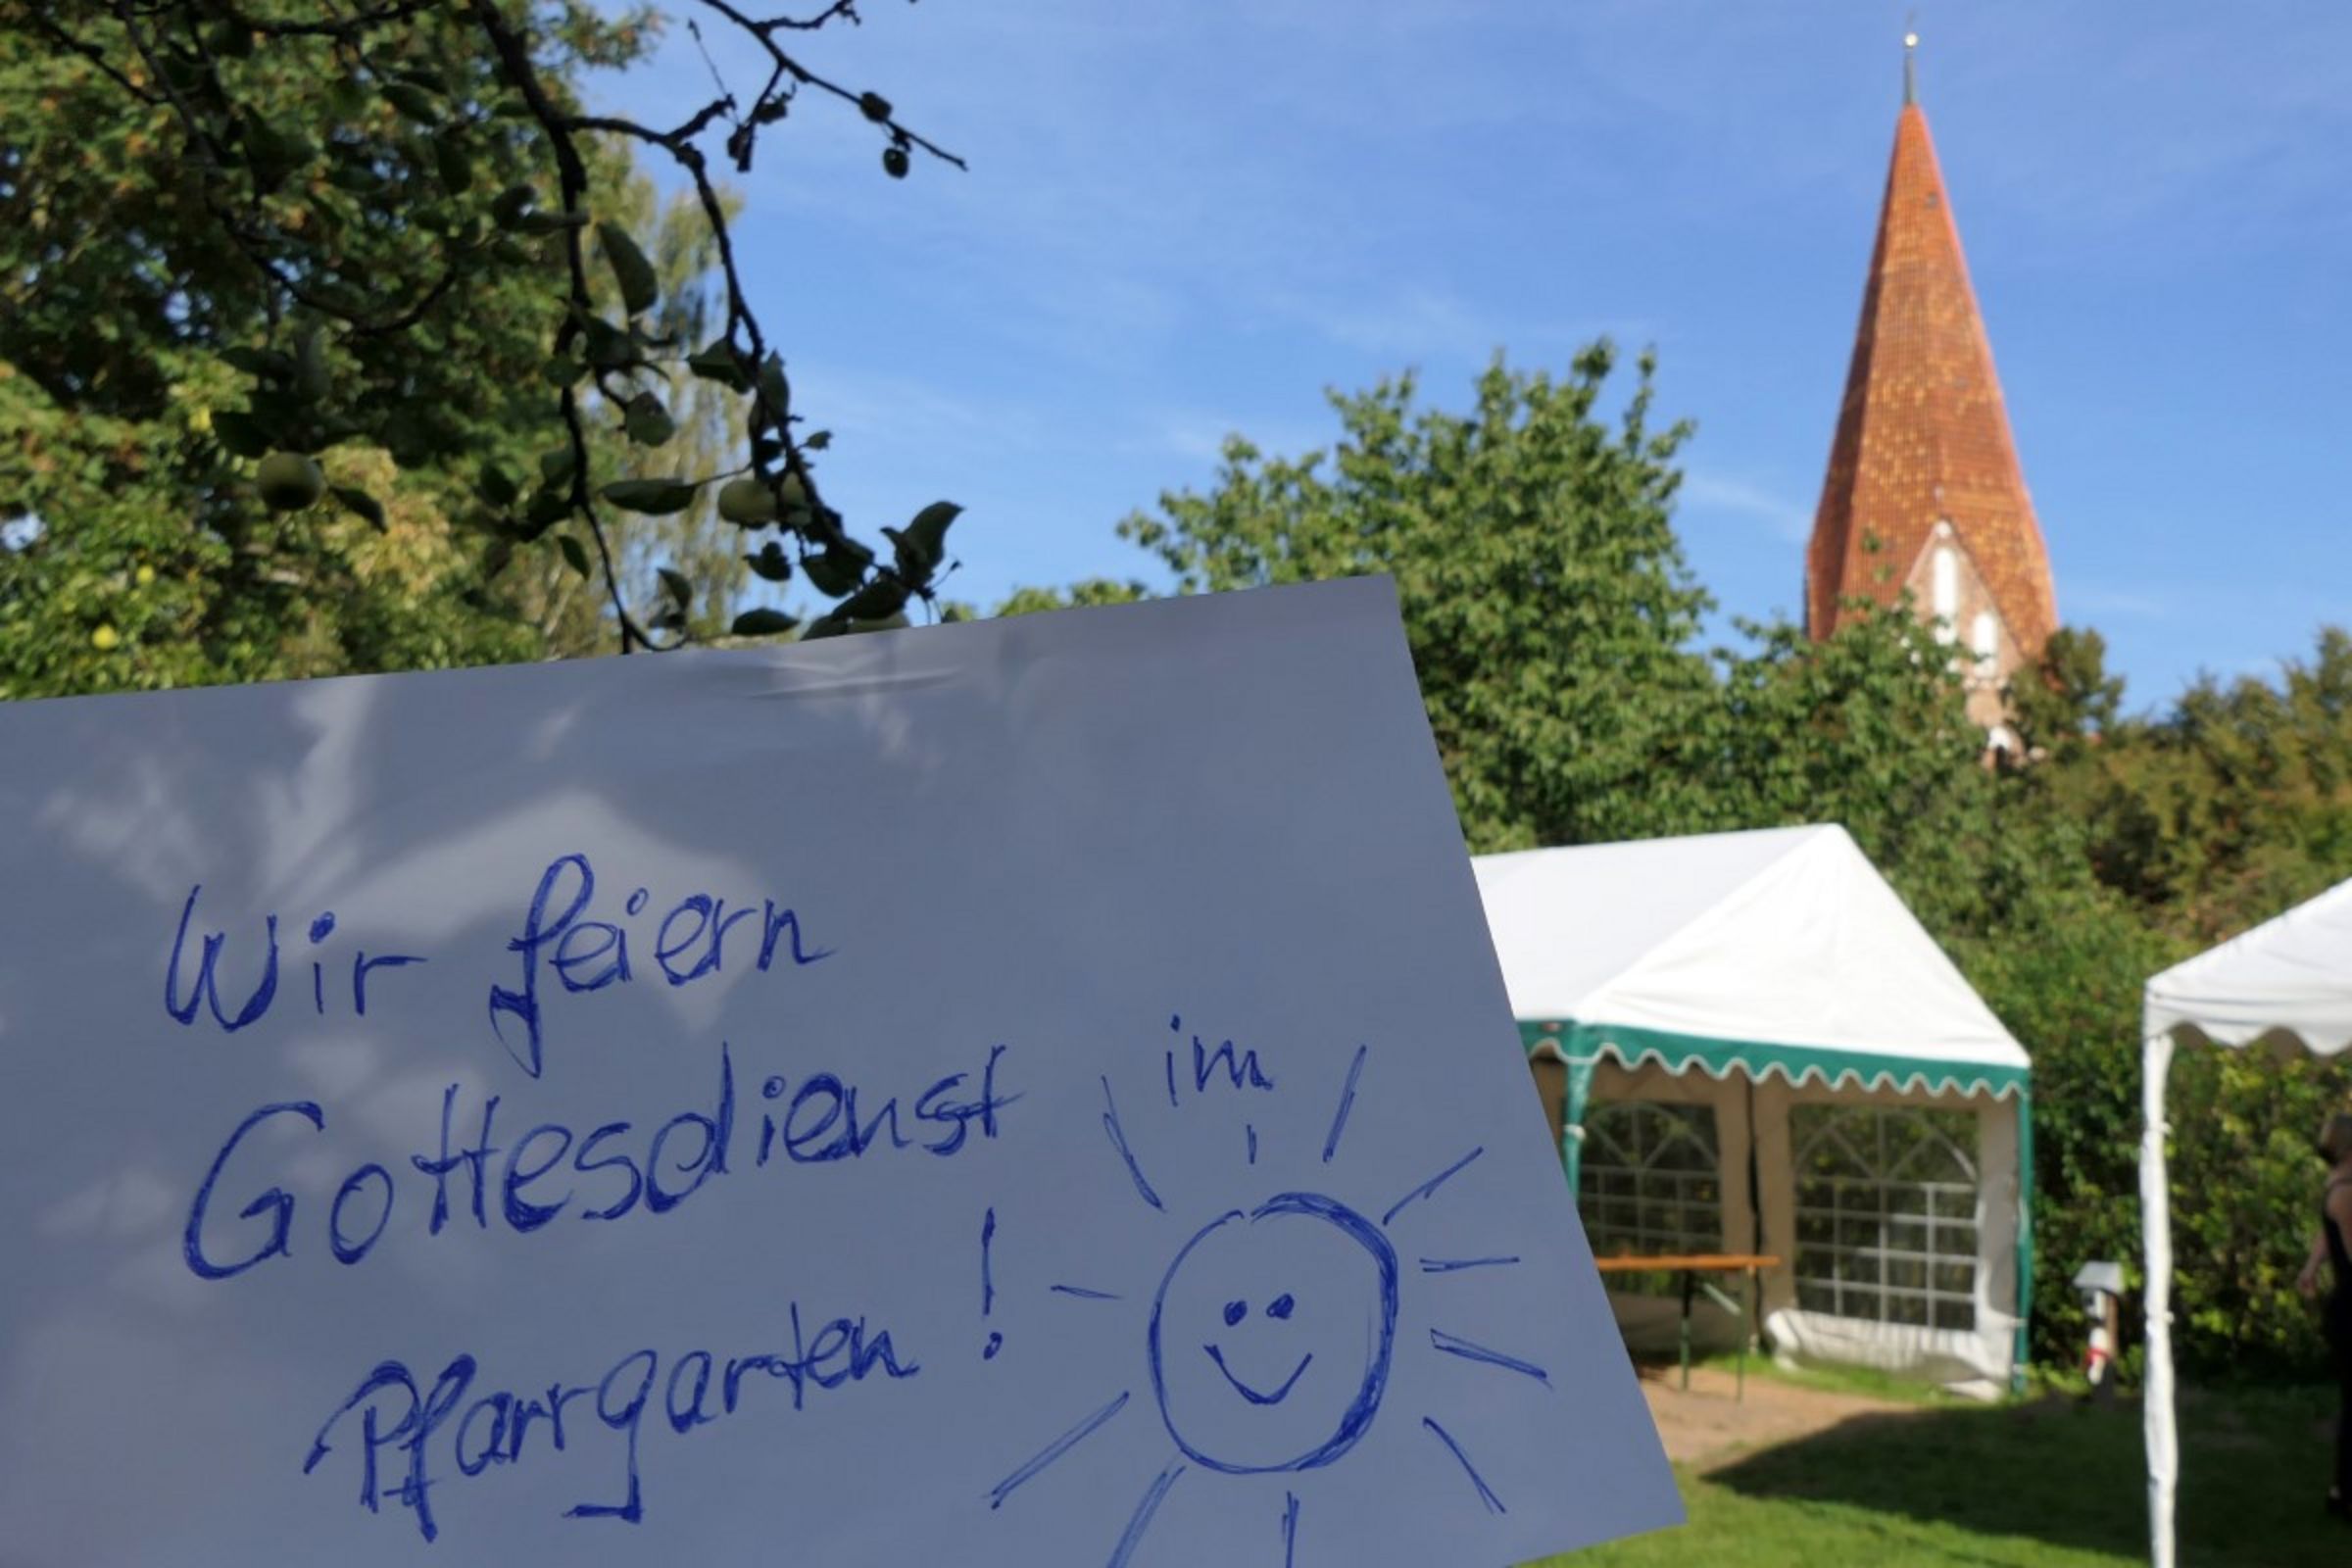 Wir feiern
Gottesdienst im
Pfarrgarten!